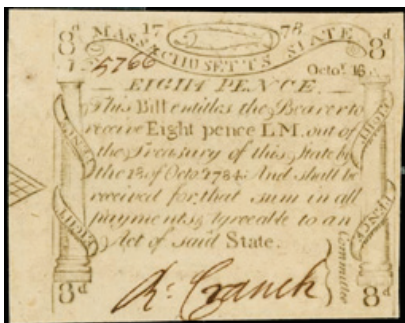 8d 17 78 8d
MASSACHUSETTS STATE
5766 Octor. 16
EIGHT PENCE.
This Bill entitles the Bearer to
receive Eight pence L M. out of
the Treasury of this State by
the 18, of Octor. 1784. And shall be
received for, that sum in all
payments, Agreeable to an
Act of said State.
EIGHT PENCE
EIGHT PENCE
Committee
8d Rd. Cranch 8d